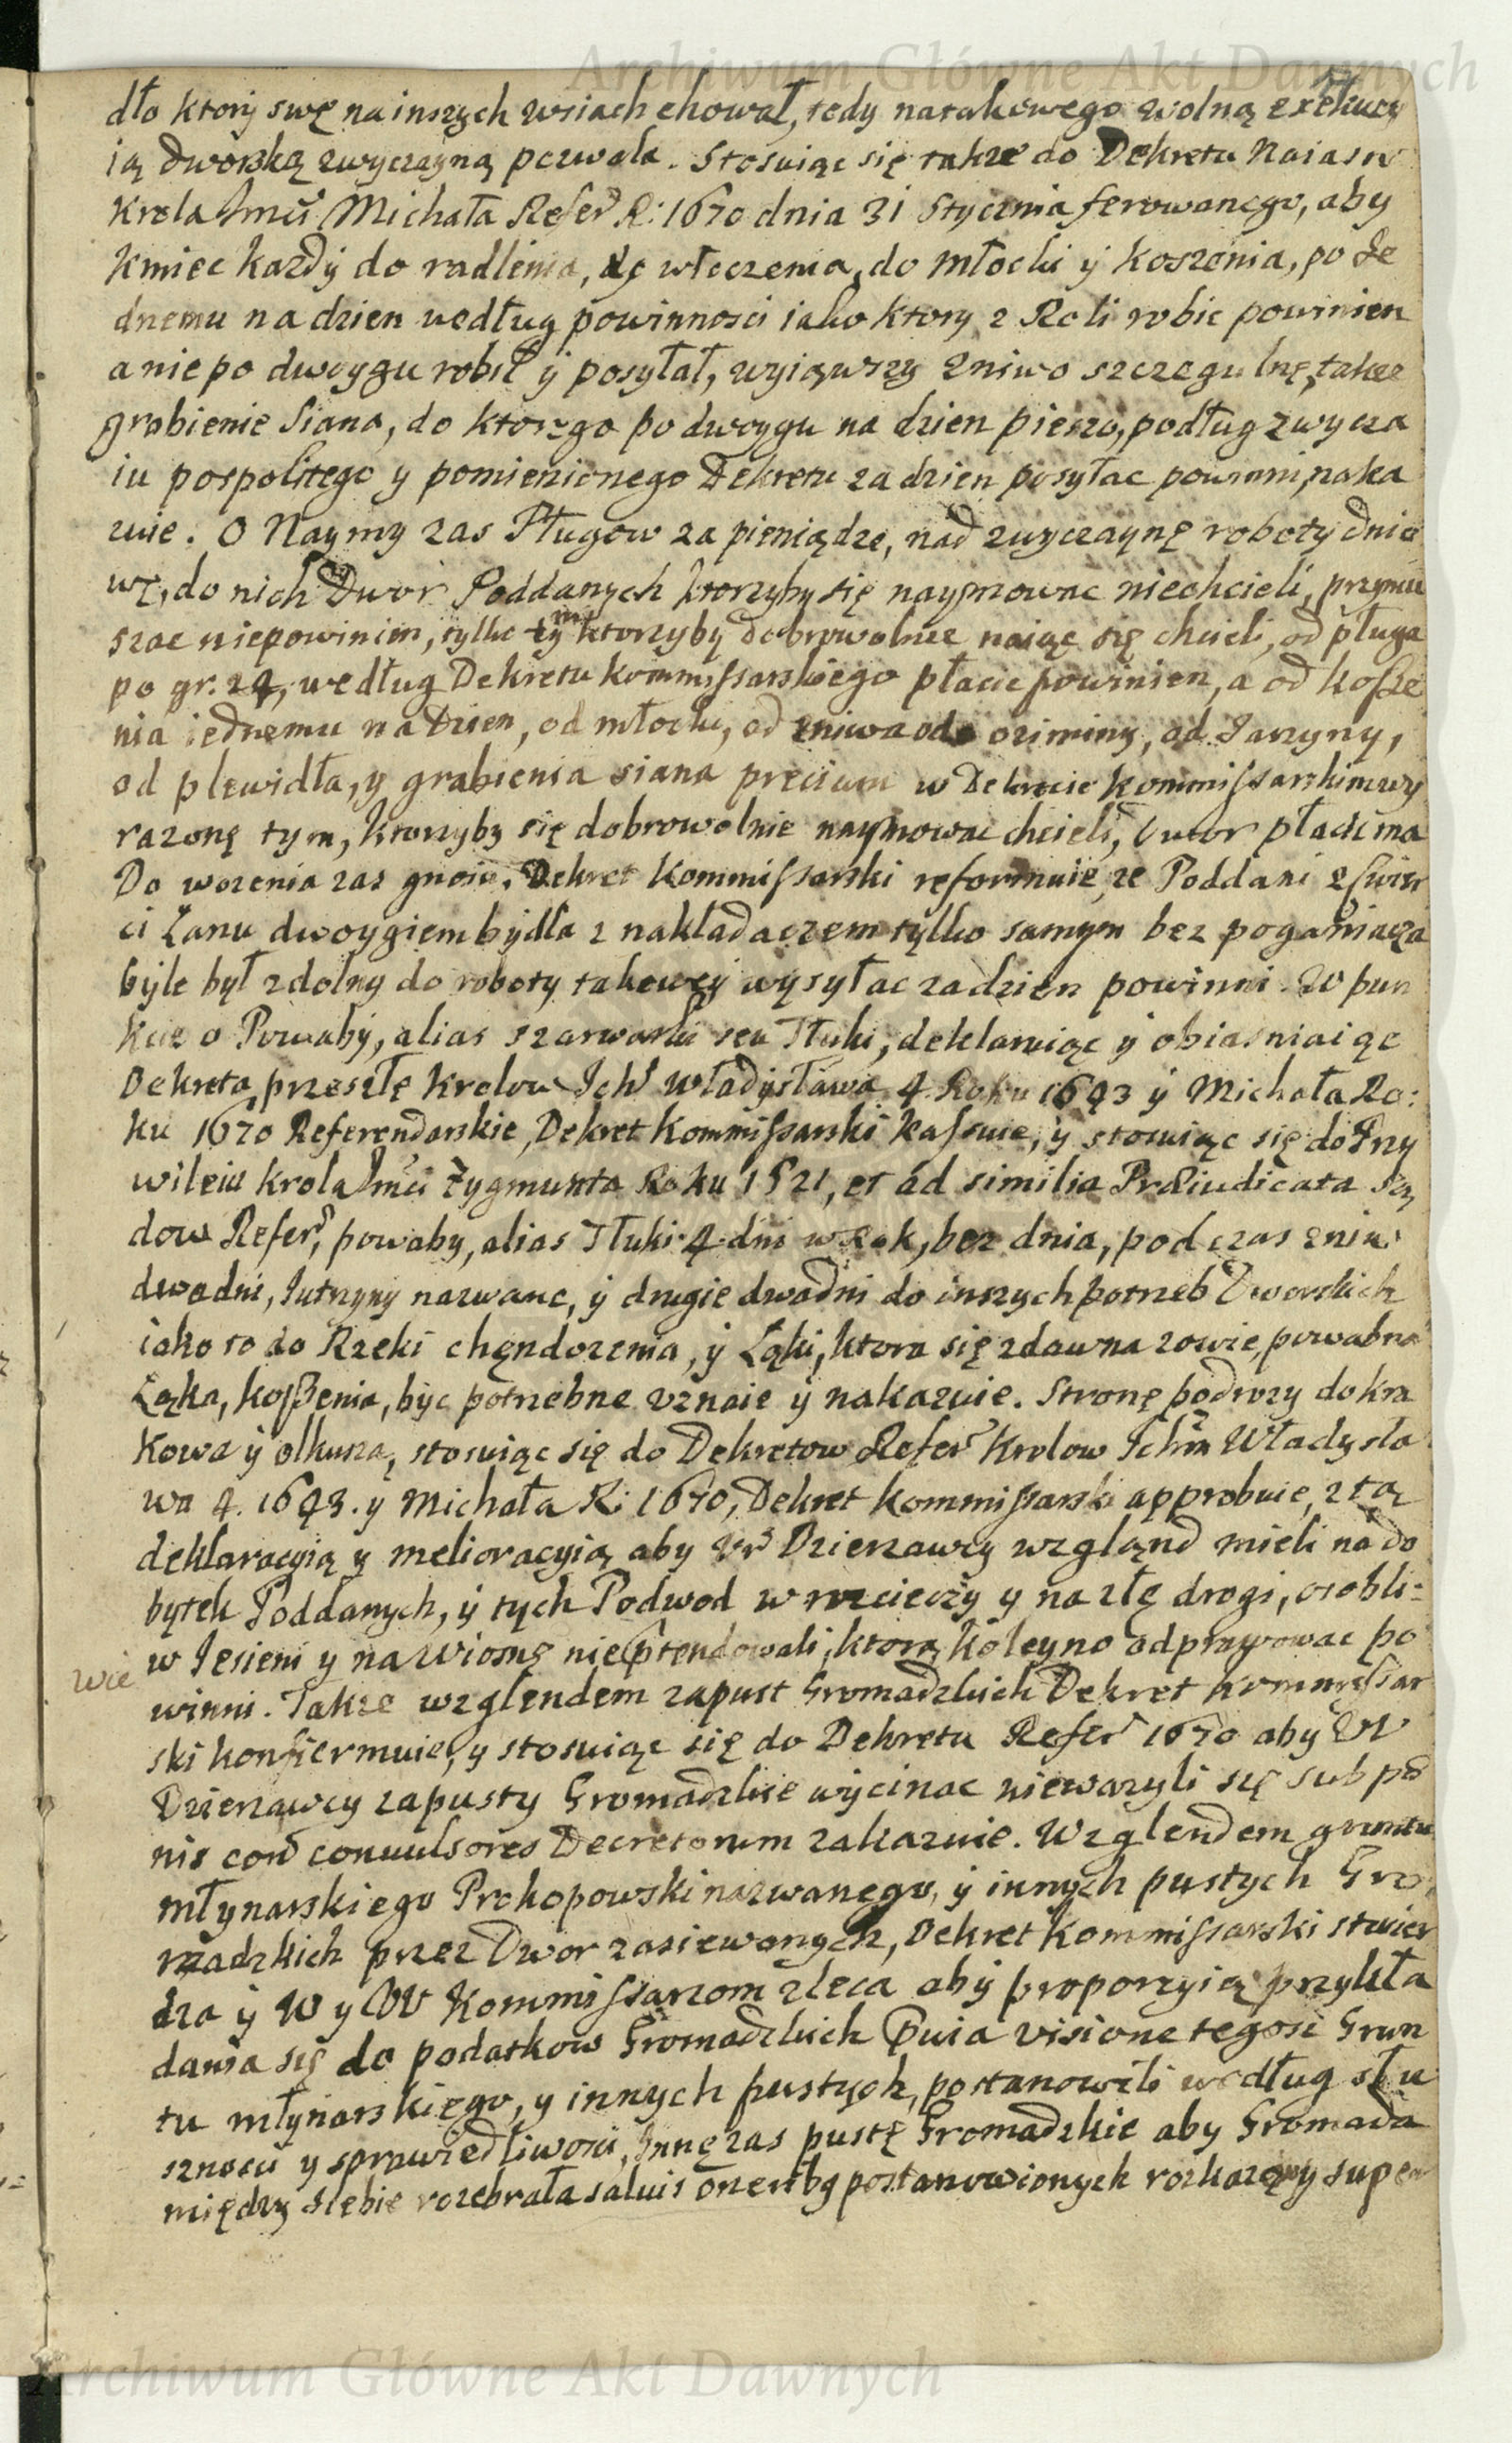 Archiwum Główne Akt Dawnych
dło ktory swę na inszych wsiach chował, tedy natakowego wolną exekucy
ią dworską zwyczayną pozwala. Stosuiąc się także do Dekretu Naiasn
Krola Jmci Michała Refer R: 1670 dnia 31 Stycznia ferowanego, aby
kmiec kazdy do radlenia, do włoczenia, do młocki y koszenia, po Je
dnemu na dzien według powinnosci iako ktory z Roli robic powinien
a nie po dwoygu robił y posyłał, wyiąwszy zniwo szczegulnę, także
grabienie Siana, do ktorego po dwoygu na dzien pieszo, podług zwycza
iu pospolitego y pomienionego Dekretu za dzien posyłac powinni, naka
zuie. O Naymy zas Pługow za pieniądze, nad zwyczaynę roboty dnio
wę, do nich Dwor Poddanych ktorzyby się naymowac niechcieli, przymu
szac niepowinien, tylko tym ktorzyby dobrowolnie naiąc się chcieli, od pługa
po gr. 24, według Dekretu kommissarskiego płacic powinien, a od kosze
nia iednemu na Dzien, od młocki, od zniwa od oziminy, od Jarzyny,
od plewidła, y grabienia siana precium w Dekrecie kommissarskim wy
razonę tym, ktorzyby się dobrowolnie naymowac chcieli, Dwor płacic ma
Do wozenia zas gnoiu, Dekret Kommissarski reformuie, ze Poddani z cwier
ci Łanu dwoygiem bydła z nakładaczem tylko samym bez poganiacza
byle był zdolny do roboty takowey wysyłac za dzien powinni. W pun
kcie o Powaby, alias szarwarki seu Tłuki, deklaruiąc y obiasniaiąc
Dekreta przeszłę krolow Ich Władysława 4. Roku 1643 y Michała Ro:
ku 1670 Referendarskie, Dekret Kommissarski kassuie, y stosuiąc się do Przy
wileiu krola Jmci Zygmunta Roku 1521, et ad similia Præiudicata Są
dow Refer, powaby, alias Tłuki 4. dni w Rok, bez dnia, podczas zniw
dwa dni, Jutrzyny nazwane, y drugie dwa dni do inszych potrzeb Dworskich
iako to do Rzeki chędozenia, y Łąki, ktora się zdawna zowie, powabna
Łąka, koszenia, byc potrzebne uznaie y nakazuie. Stronę podrozy do kra
kowa y olkusza, stosuiąc się do Dekretow Refer Krolow Ichm Władysła
wa 4. 1643. y Michała R: 1670, Dekret kommissarski approbuie, z tą
deklaracyią y melioracyią aby Ur Dzierzawcy wzgląnd mieli na do
bytek Poddanych, y tych Podwod w rozcieczy y na złę drogi, osobli=
wie w Jesieni y na wiosnę nieprtendowali, ktorą koleyno odprawowac po
winni. Takze wzglendem zapust Gromadzkich Dekret kommissar
ski konfiermuie, y stosuiąc się do Dekretu Refer 1670 aby UU
Dzierzawcy zapusty Gromadzkie wycinac niewazyli się sub pœ
nis con convulsores Decretorum zakazuie. Wzglendem gruntu
młynarskiego Prokopowski nazwanego, y innych pustych Gro,
madzkich przez Dwor zasiewanych, Dekret kommissarski stwier
dza y W y UU Kommissarzom zleca aby proporcyią przykła
dania się do podatkow Gromadzkich prvia visione tegosz Grun
tu młynarskiego, y innych pustych, postanowili według słu
sznosci y sprawiedliwosci, Innę zas pustę Gromadzkie aby Gromada
między siebie rozebrała salvis oneribq postanowionych rozkazuie y super
Archiwum Główne Akt Dawnych